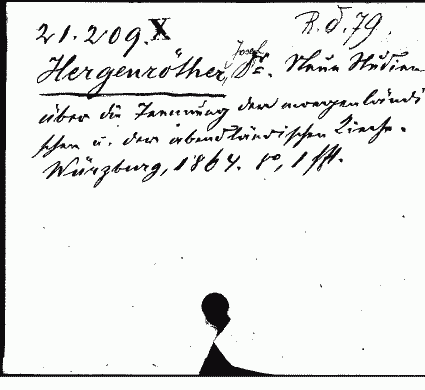 21.209. X R. d. 79.
Hergenröther, Joseph Dr. Neue Studien
über die Trennung der morgenländi
schen u. der abendländischen Kirche.
Würzburg, 1864. 8°, 1 Hft.